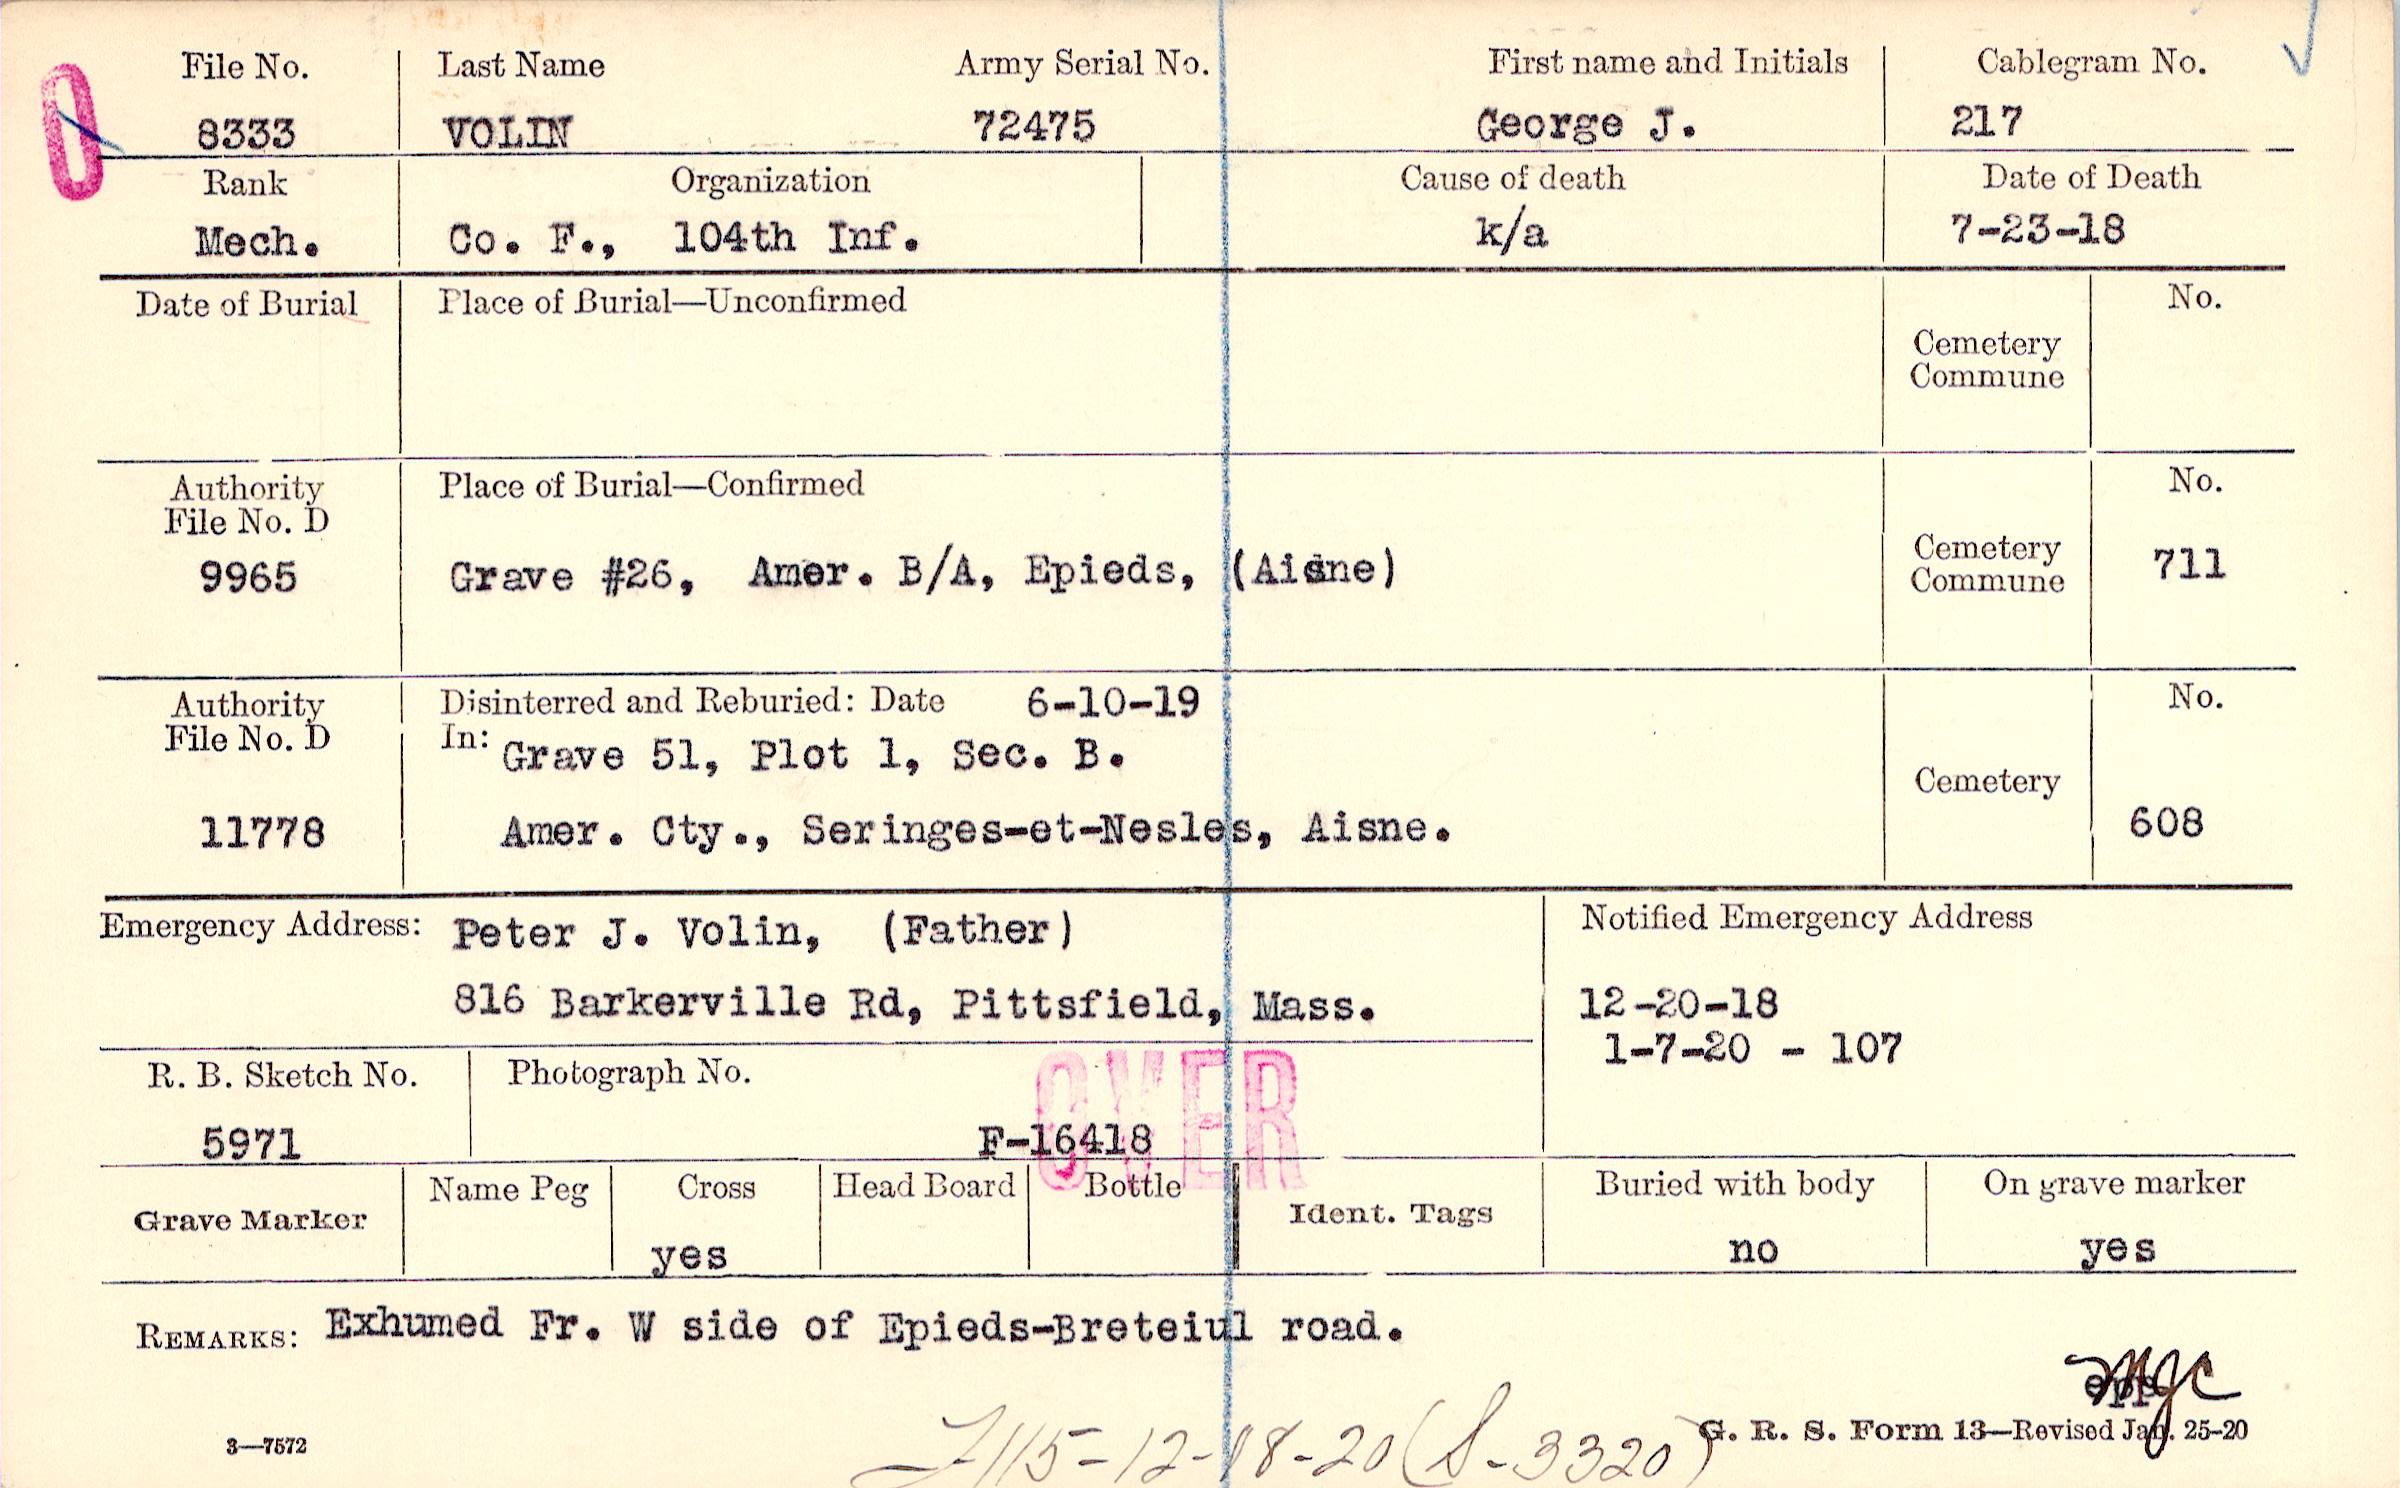 File No. Last Name Army Serial No. First name and Initials Cablegram No.
8333 VOLIN 72475 George J. 217
Rank Organization Cause of death Date of Death
Mech. Co. F., 104th Inf. k/a 7-23-18
Date of Burial Place of Burial—Unconfirmed No.
Cemetery
Commune
Authority Place of Burial—Confirmed No.
File No. D
Cemetery
Commune
9965 Grave #26, Amer. B/A, Epieds, (Aisne) 711
Authority Disinterred and Reburied: Date 6-10-19 No.
File No. D In: Grave 51, Plot 1, Sec. B.
Cemetery
11778 Amer. Cty., Seringes-et-Nesles, Aisne. 608
Emergency Address: Peter J. Volin, (Father) Notified Emergency Address
816 Barkerville Rd, Pittsfield, Mass. 12-20-18
1-7-20 - 107
R. B. Sketch No. Photograph No. OVER
5971 F-16418
Name Peg Cross Head Board Bottle Buried with body On grave marker
Grave Marker Ident. Tags
yes no yes
REMARKS: Exhumed Fr. W side of Epieds-Breteiul road.
MJC
3—7572 115-12-18-20 (S-3320) G. R. S. Form 13—Revised Jan. 25-20